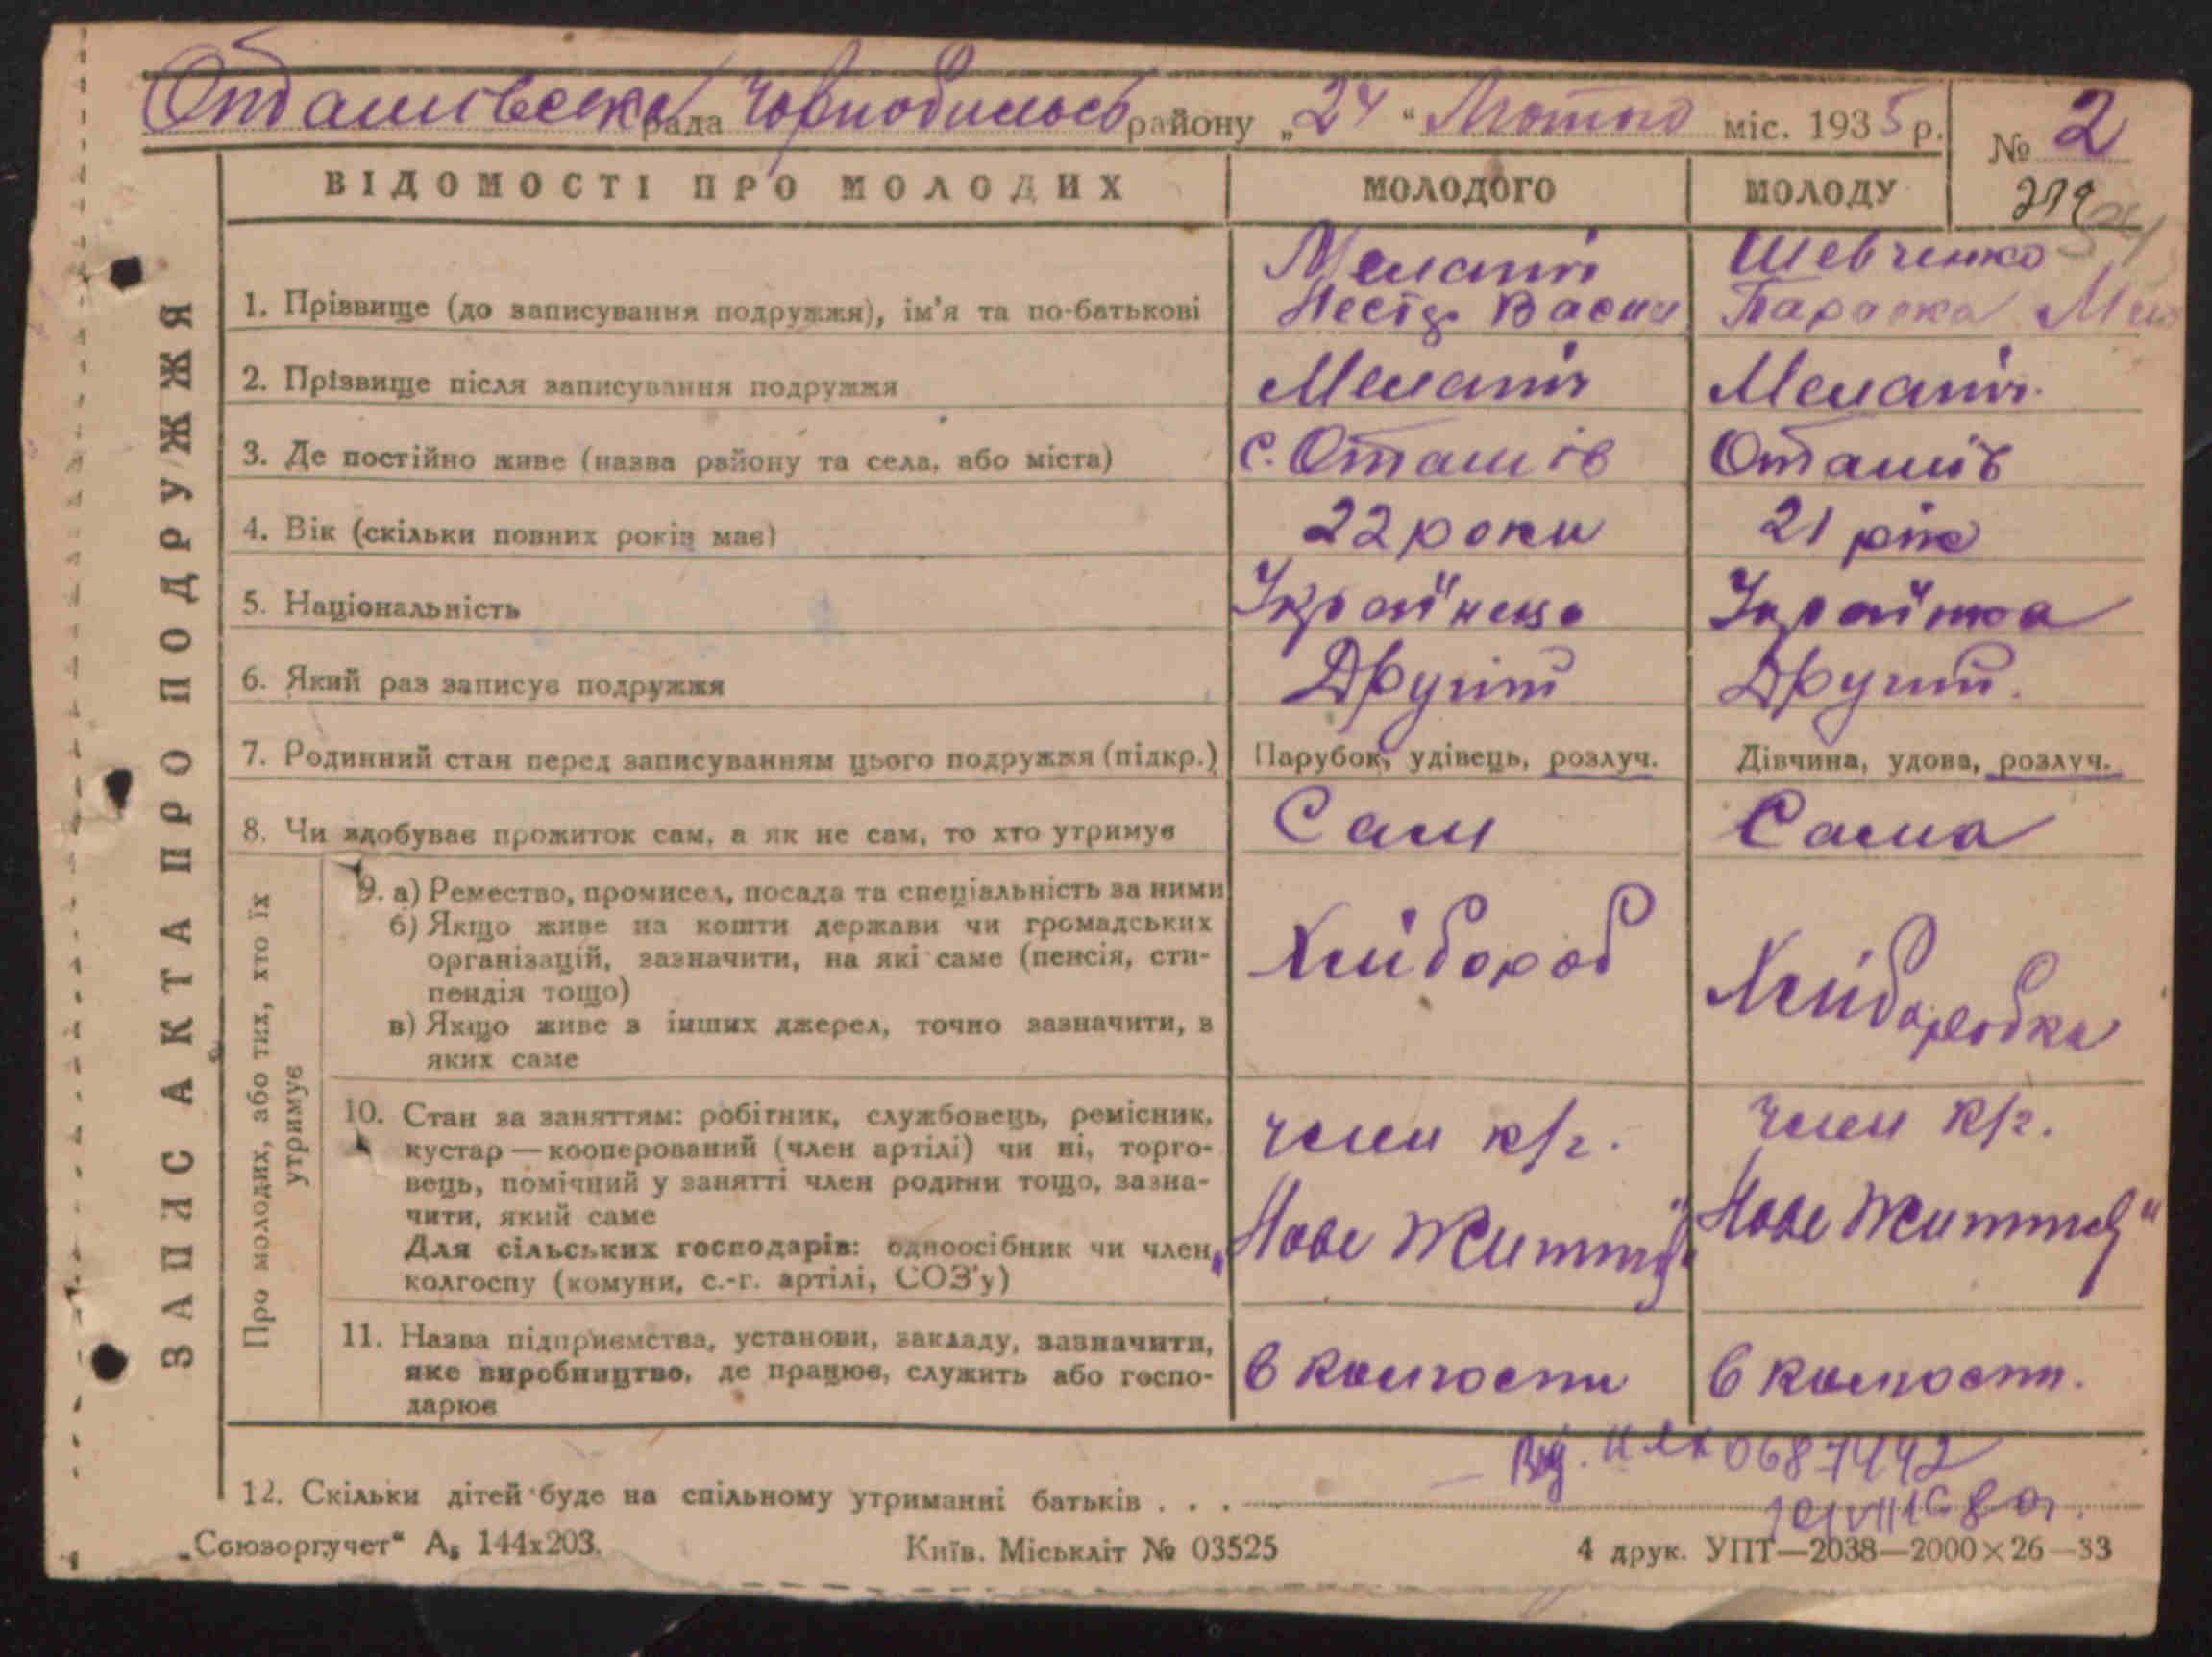 Оташівська рада Чорнобильсь району „24“ Лютого міс. 1935 р. № 2
ВІДОМОСТІ ПРО МОЛОДИХ МОЛОДОГО МОЛОДУ 219
ЗАПИС АКТА ПРО ПОДРУЖЖЯ
1. Прізвище (до записування подружжя), ім'я та по-батькові
Шевченко
Параска
2. Прізвище після записування подружжя
3. Де постійно живе (назва району та села, або міста) с. Оташів Оташів
4. Вік (скільки повних років має) 22 роки 21 рік
5. Національність Українець Українка
6. Який раз записує подружжя Другий Другий.
7. Родинний стан перед записуванням цього подружжя (підкр.) Парубок, удівець, розлуч. Дівчина, удова, розлуч.
8. Чи здобуває прожиток сам, а як не сам, то хто утримує Сам Сама
Про молодих, або тих, хто їх
утримує
9. а) Ремество, промисел, посада та спеціальність за ними
б) Якщо живе на кошти держави чи громадських
організацій, зазначити, на які саме (пенсія, сти-
пендія тощо)
в) Якщо живе з інших джерел, точно зазначити, з
яких саме
Хлібороб Хліборобка
10. Стан за заняттям: робітник, службовець, ремісник,
кустар — кооперований (член артілі) чи ні, торго-
вець, помічний у занятті член родини тощо, зазна-
чити, який саме
Для сільських господарів: одноосібник чи член
колгоспу (комуни, с.-г. артілі, СОЗ'у)
член к/г. член к/г.
„Нове Життя" Нове Життя"
11. Назва підприємства, установи, закладу, зазначити,
яке виробництво, де працює, служить або госпо-
дарює
в колгоспи в колгосп.
0687442
12. Скільки дітей буде на спільному утриманні батьків . . .
„Союзоргучет“ А₅ 144х203. Київ. Міськліт № 03525 4 друк. УПТ—2038—2000×26—33